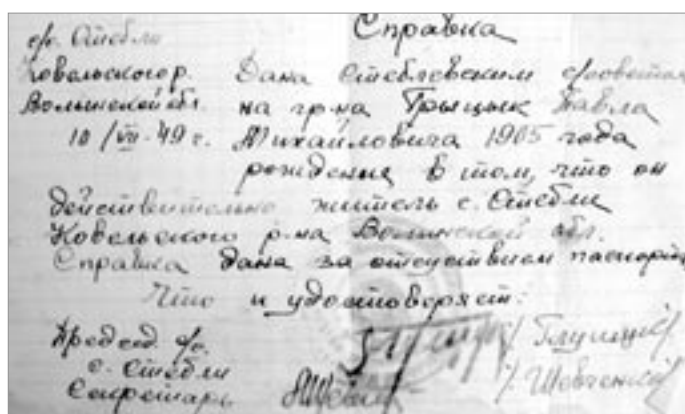 Справка
с/с. Стебли
Ковельского р.
Волынской обл.
10/VII-49 г.
Дана Стеблевским с/советом
на гр-на Грыцык Павла
Михайловича 1905 года
рождения в том, что он
действительно житель с. Стебли
Ковельского р-на Волынской обл.
Справка дана за отсуствием паспорта
Что и удостоверяет:
Председ. с/с.
с. Стебли
Секретарь
/Шевченко/